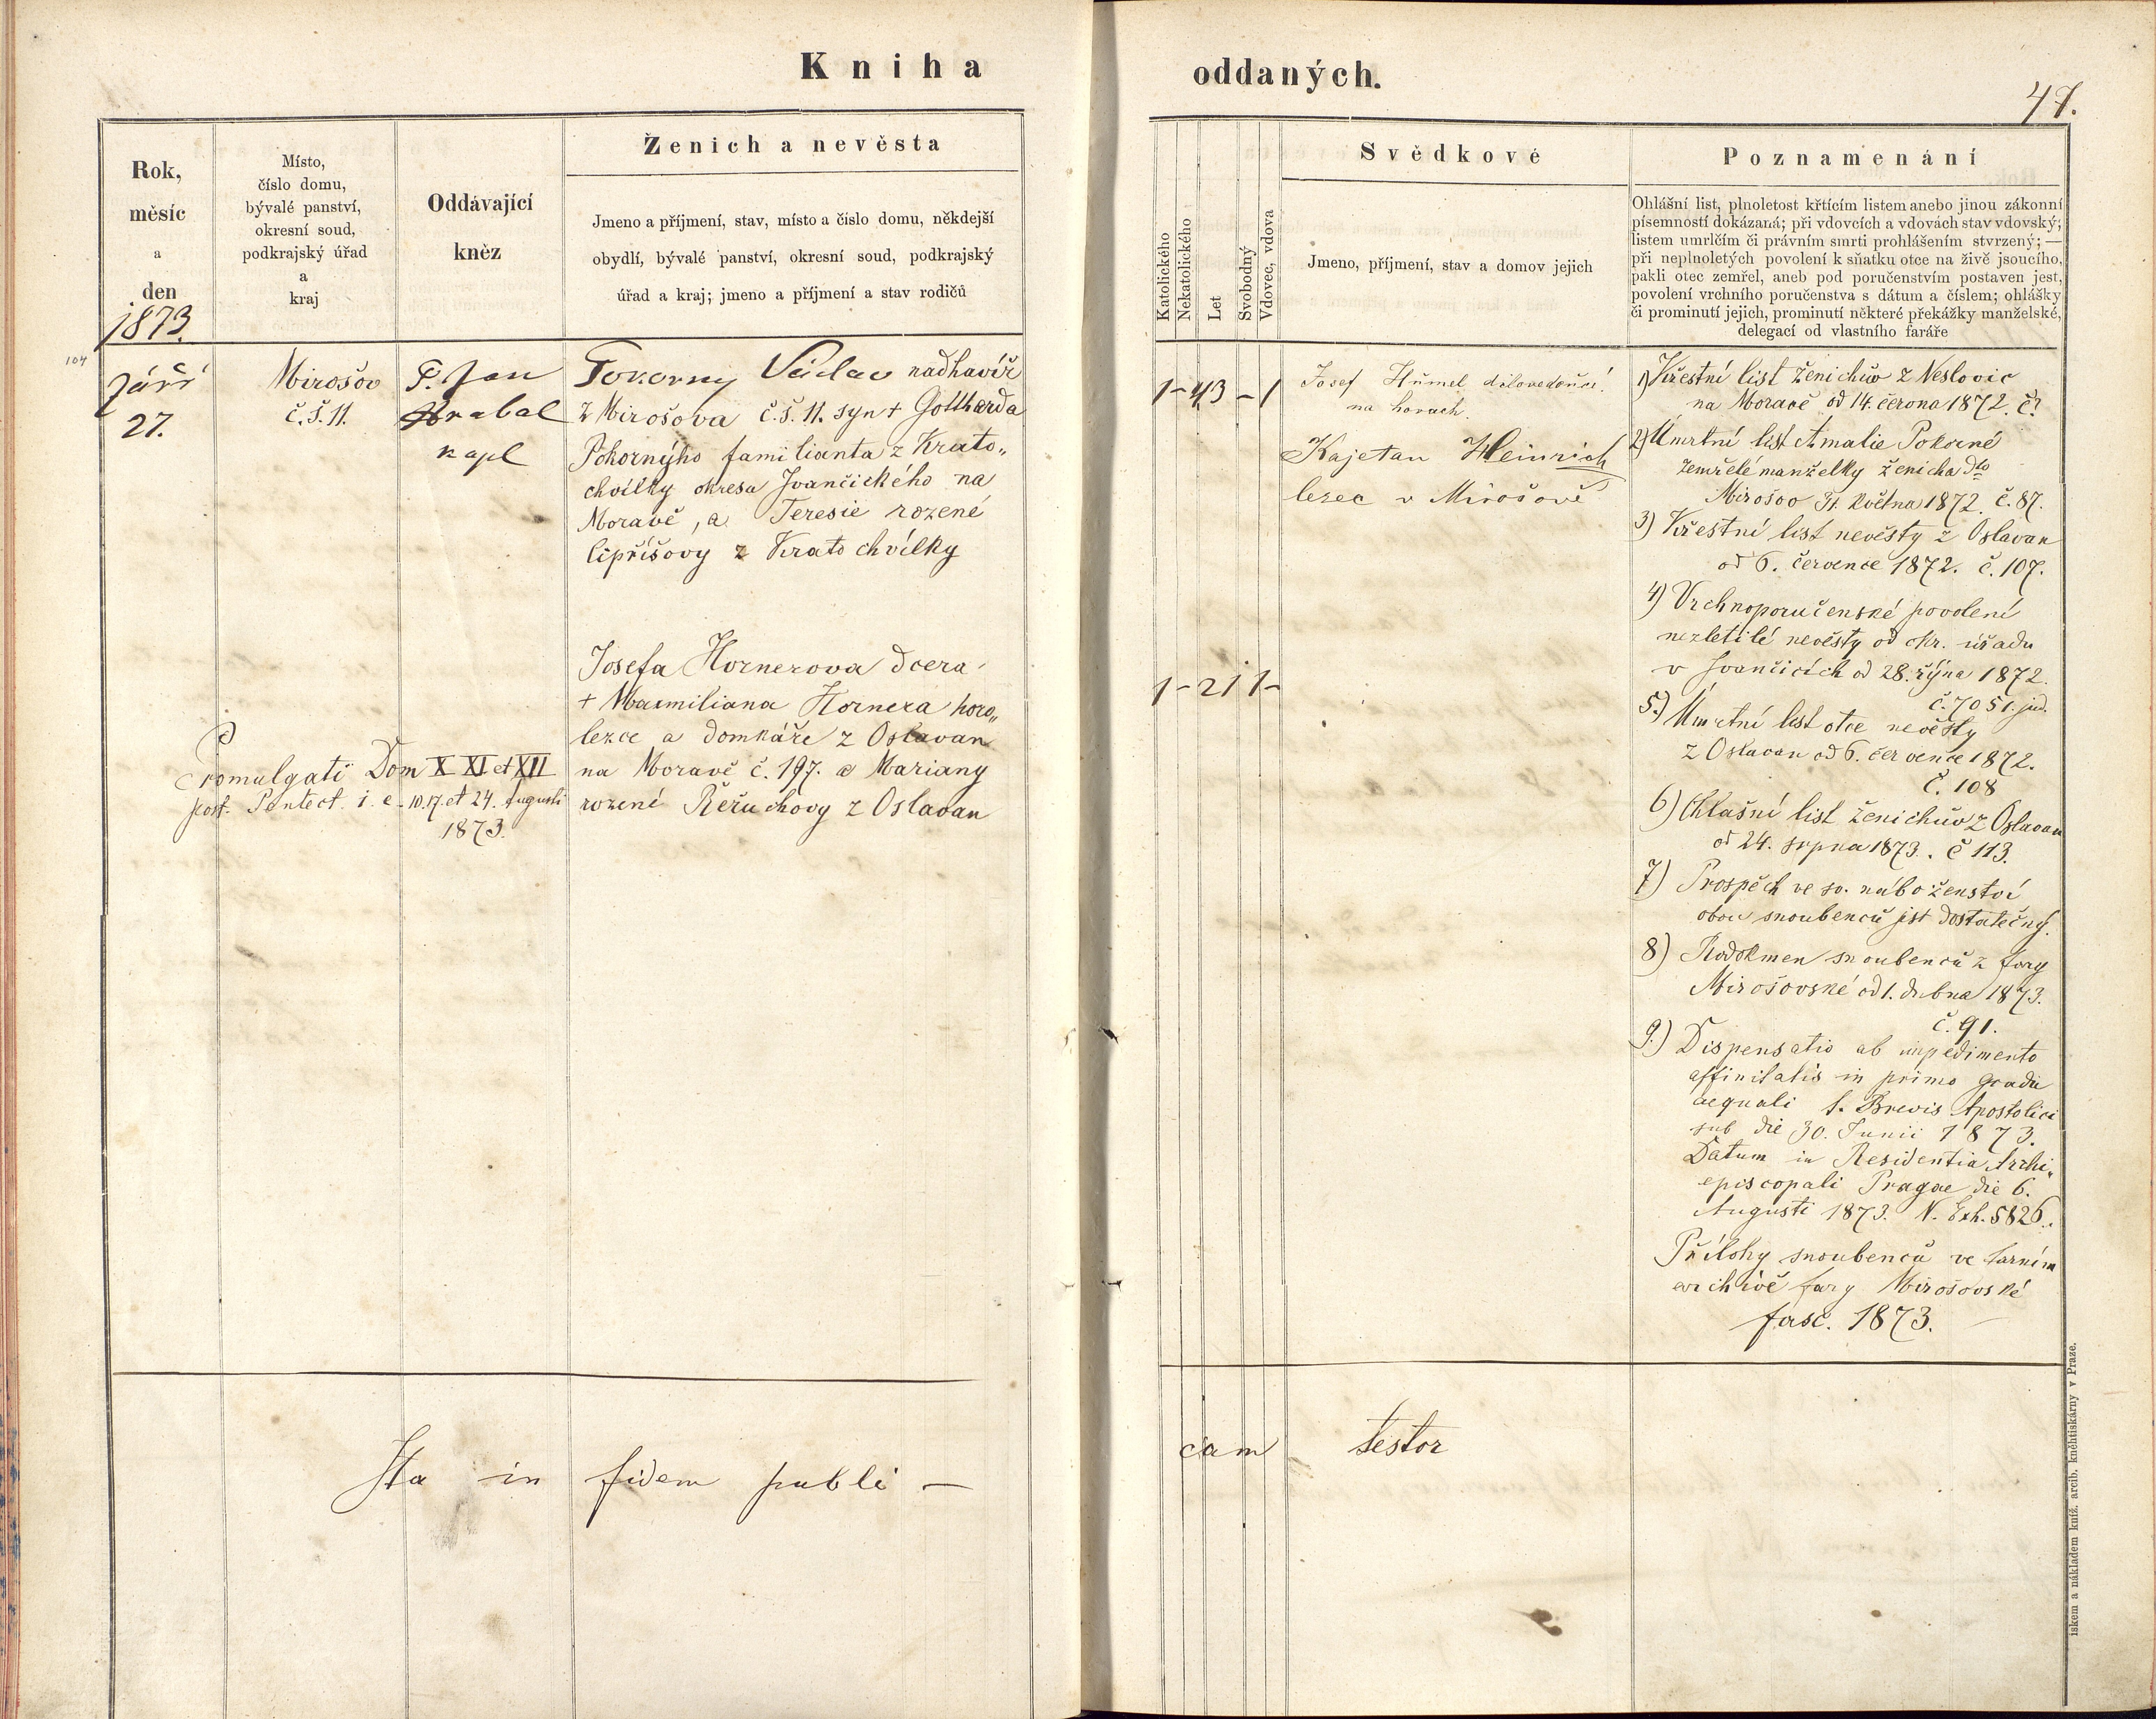 Kniha
oddaných.
47.
Rok,
měsíc
a
den
1873.
Místo,
číslo domu,
bývalé panství,
okresní soud,
podkrajský úřad
a
kraj
Oddávající
kněz
Ženich a nevěsta
Jmeno a příjmení, stav, místo a číslo domu, někdejší
obydlí, bývalé panství, okresní soud, podkrajský
úřad a kraj; jmeno a příjmení a stav rodičů
Katolického
Nekatolického
Let
Svobodný
Vdovec, vdova
Svědkové
Jmeno, příjmení, stav a domov jejich
Poznamenání
Ohlášní list, plnoletost křtícím listem anebo jinou zákonní
písemností dokázaná; při vdovcích a vdovách stav vdovský,
listem umrlčím či právním smrti prohlášením stvrzený; —
při neplnoletých povolení k sňatku otce na živě jsoucího,
pakli otec zemřel, aneb pod poručenstvím postaven jest,
povolení vrchního poručenstva s dátum a číslem; ohlášky
či prominutí jejich, prominutí některé překážky manželské,
delegací od vlastního faráře
104
Září
27.
Mirošov
č.š. 11.
P. Jan
Hrabal
kapl
Pokorny Václav nadhavíř
z Mirošova č.š. 11. syn + Gottharda
Pokornýho familianta z Krato„
chvilky okresa Ivančického na
Moravě, a Teresie rozené
Lipříšovy z Kratochvílky
Josefa Hornerova dcera
+ Maxmiliana Hornera horo„
lezce a domkáře z Oslavan
na Moravě č. 197. a Mariany
rozené Řeřuchovy z Oslavan
Promulgati Dom X XI et XII
post. Pentect. i. e. 10. 17. et 24. Augusti
1873.
1 - 43 - 1
1 - 21 1 -
Josef Hümel dílovedoucí
na horách.
Kajetan Heinrich
lezec v Mirošově
1) Křestní list ženichův z Neslovic
na Moravě od 14. června 1872. č.
2) Úmrtní list Amalie Pokorné
zemřelé manželky ženicha dto
Mirošov 31. května 1872. č. 87.
3) Křestní list nevěsty z Oslavan
od 6. července 1872. č. 107.
4) Vrchnoporučenské povolení
nezletilé nevěsty od okr. úřadu
v Ivančicích od 28. října 1872.
č. 7051. jud.
5.) Úmrtní list otce nevěsty
z Oslavan od 6. července 1872.
č. 108
6) Ohlašní list ženichův z Oslavan
od 24. srpna 1873. č 113.
7) Prospěch ve sv. náboženství
obou snoubenců jest dostatečný.
8) Rodokmen snoubenců z fary
Mirošovské od 1. dubna 1873.
č. 91.
9.) Dispensatio ab impedimento
affinitatis in primo gradu
aequali s. Brevis Apostolici
sub die 30. Junii 1873.
Datum in Residentia Archi„
episcopali Pragae die 6.
Augusti 1873. N. Exh. 5826.
Přílohy snoubenců ve farním
archivě fary Mirošovské
fasc. 1873.
Ita in fidem publi —
cam testor
iskem a nákladem kníž. arcib. kněhtiskárny v Praze.